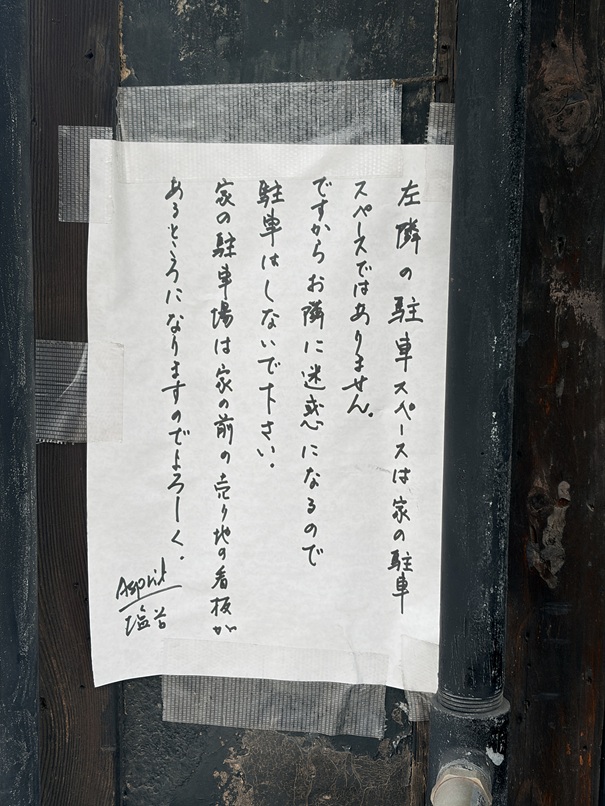 左隣の駐車スペースは家の駐車
スペースではありません。
ですからお隣に迷惑になるので
駐車はしないで下さい。
家の駐車場は家の前の売り地の看板が
あるところになりますのでよろしく。
Asprit
塩谷